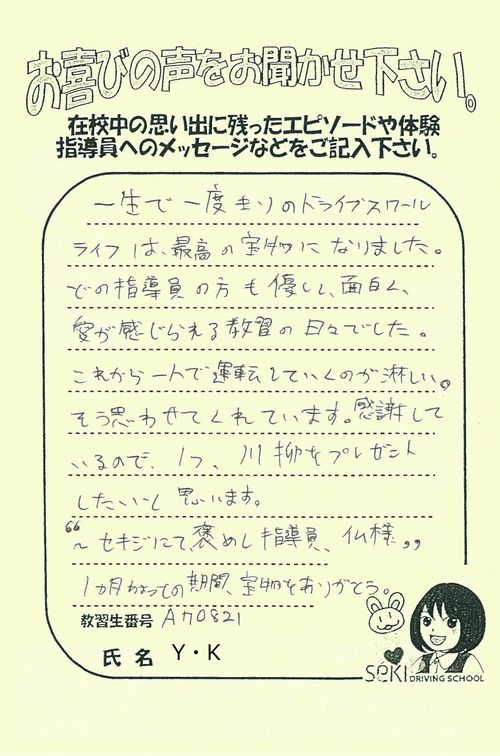 お喜びの声をお聞かせ下さい。
在校中の思い出に残ったエピソードや体験
指導員へのメッセージなどをご記入下さい。
一生で一度きりのドライブスクール
ライフは、最高の宝物になりました。
どの指導員の方も優しく、面白く、
愛が感じられる教習の日々でした。
これから一人で運転していくのが淋しい。
そう思わせてくれています。感謝して
いるので、1つ、川柳をプレゼント
したいと思います。
“～セキジにて、褒めし指導員、仏様„
1カ月ちょっとの期間、宝物をありがとう。
教習生番号 A70821
氏名 Y・K
SEKI DRIVING SCHOOL